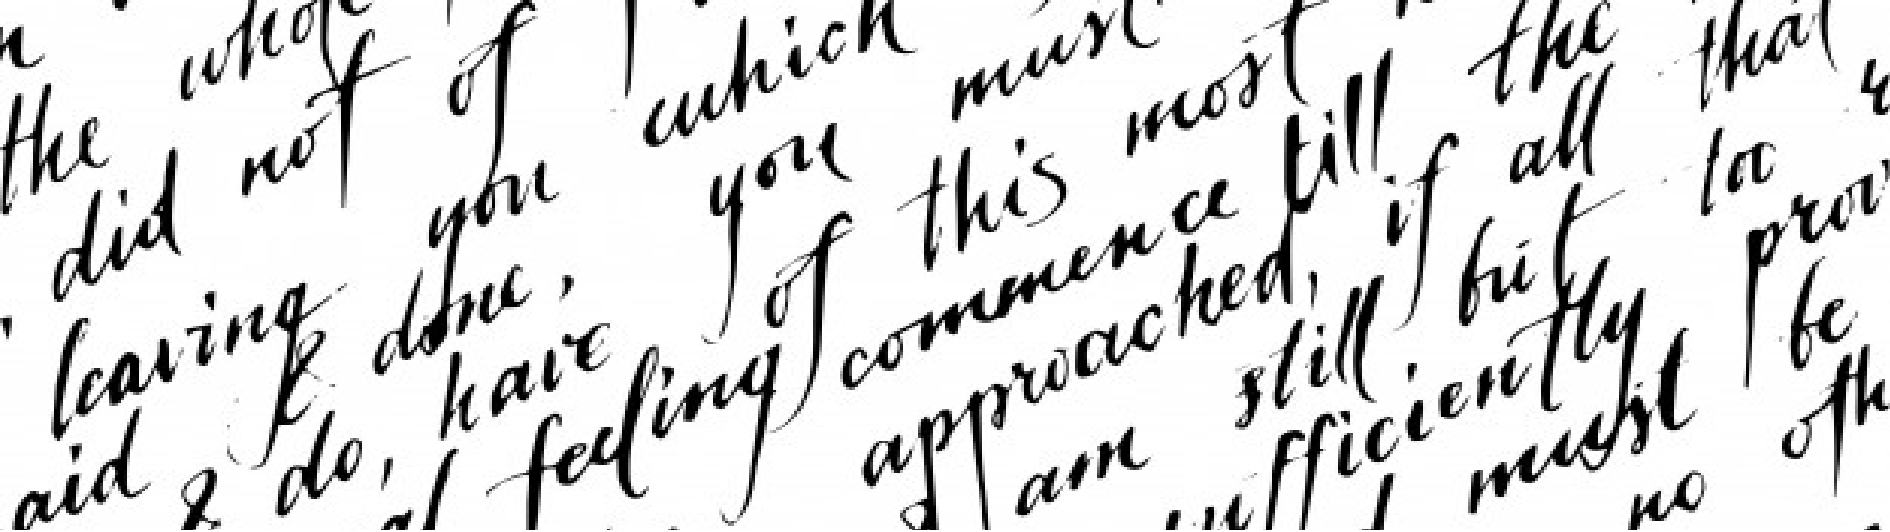 the
did not of
leaving you which
& done, you must
& do, have of this most
feeling commence till the
approached, if all that
am still but to
sufficiently
must be
no